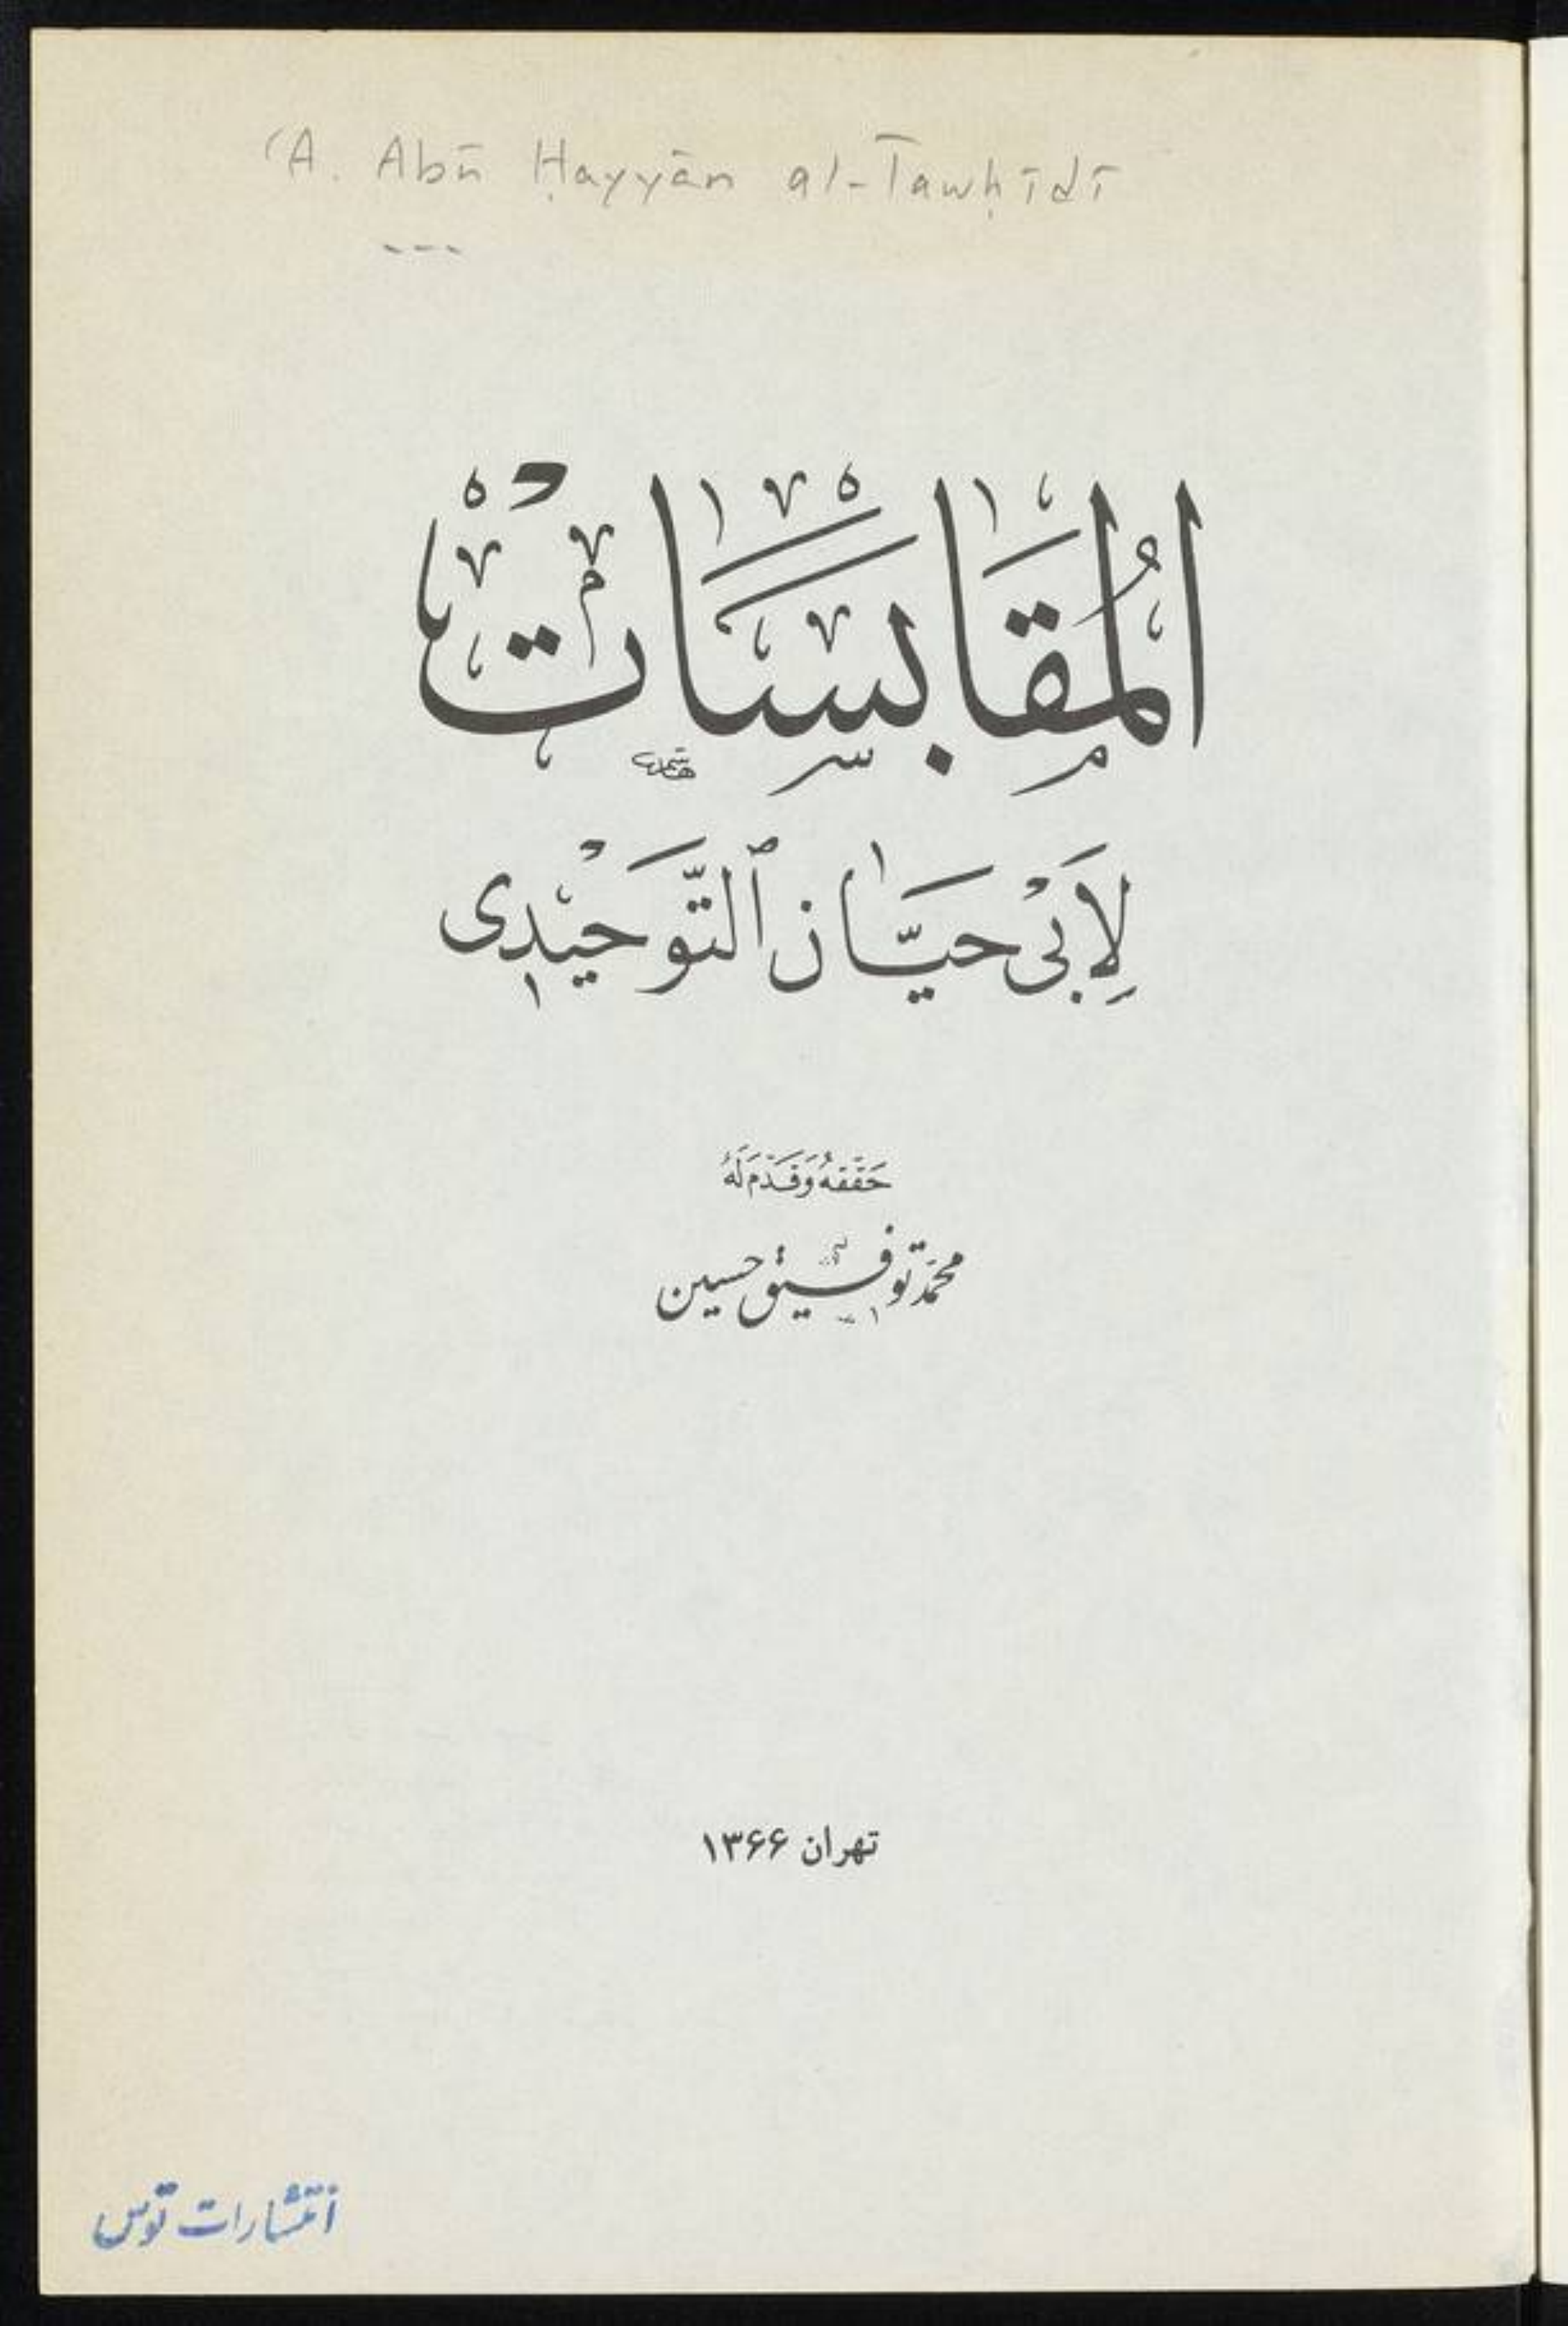 (A. Abū Ḥayyān al-Tawḥīdī
المُقَابَسَاتْ
لِأَبِي حَيَّان ٱلتَّوحَيْدِى
حَقَّقَهُ وَقَدَّمَ لَهُ
محمّد توفيق حسين
تهران ۱۳۶۶
انتشارات توس